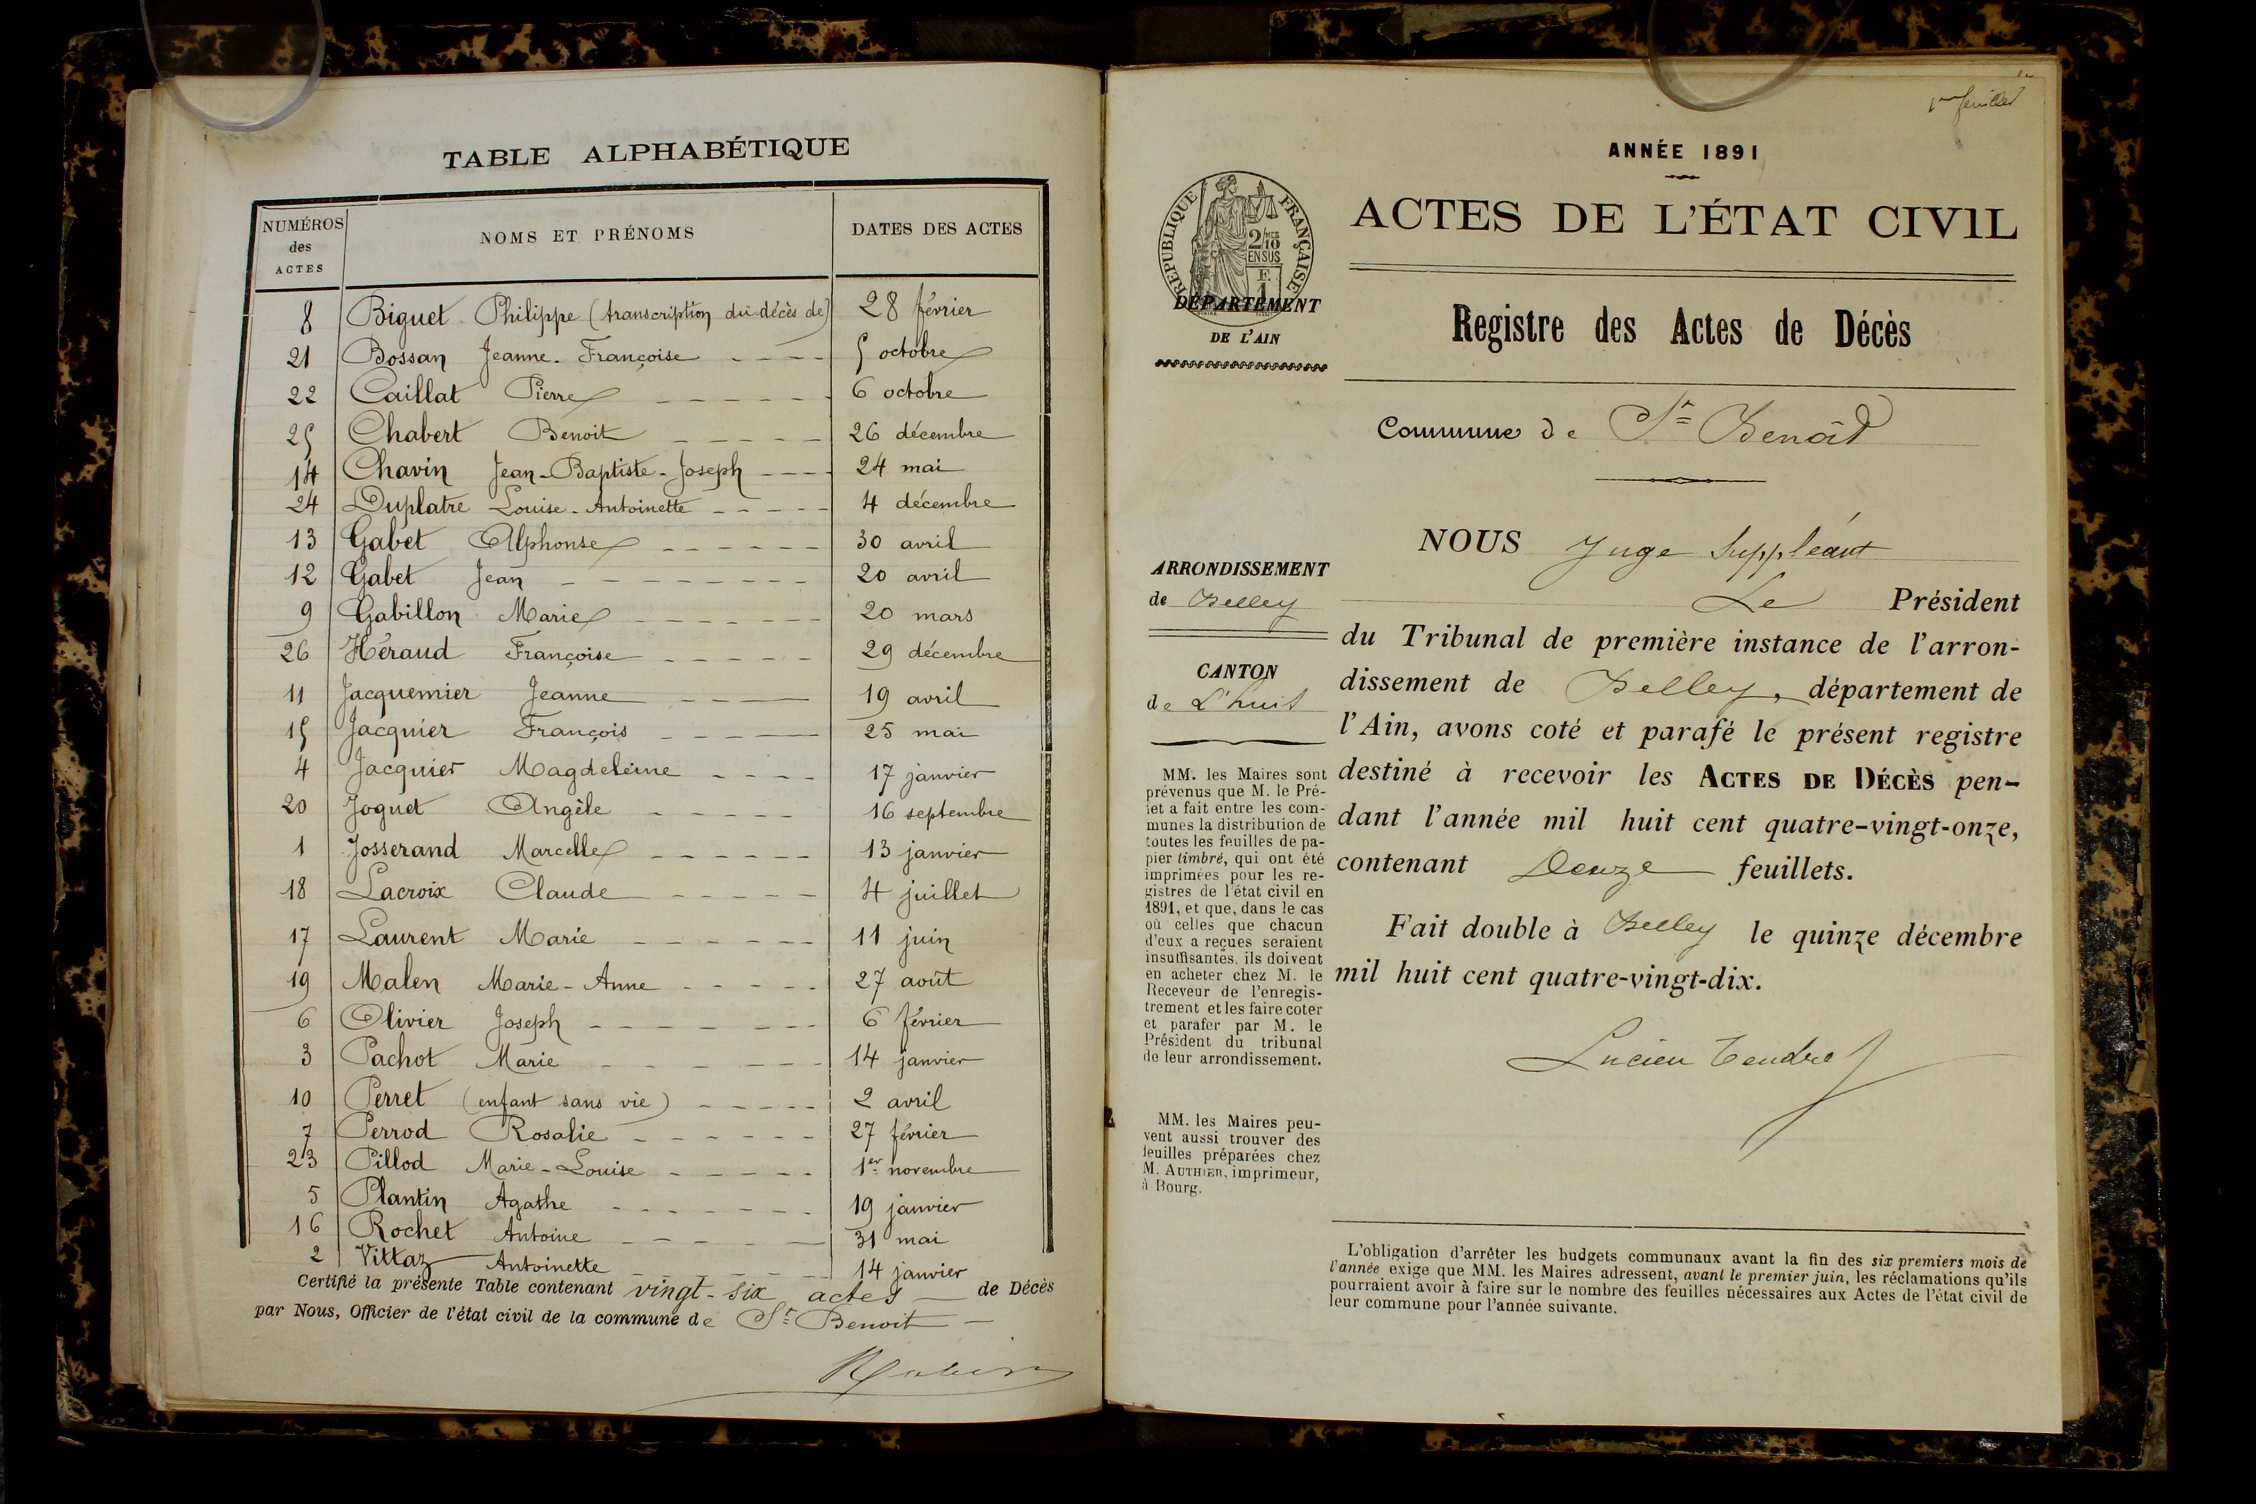 TABLE ALPHABÉTIQUE
NUMÉROS des ACTES NOMS ET PRÉNOMS DATES DES ACTES
8 Biguet Philippe (transcription du décès de) 28 février
21 Bossan Jeanne-Françoise 5 octobre
22 Caillat Pierre 6 octobre
25 Chabert Benoit 26 décembre
14 Chavin Jean-Baptiste-Joseph 24 mai
24 Duplatre Louise-Antoinette 4 décembre
13 Gabet Alphonse 30 avril
12 Gabet Jean 20 avril
9 Gabillon Marie 20 mars
26 Héraud Françoise 29 décembre
11 Jacquemier Jeanne 19 avril
15 Jacquier François 25 mai
4 Jacquier Magdeleine 17 janvier
20 Joguet Angèle 16 septembre
1 Josserand Marcelle 13 janvier
18 Lacroix Claude 4 juillet
17 Laurent Marie 11 juin
19 Malen Marie-Anne 27 août
6 Olivier Joseph 6 février
3 Pachot Marie 14 janvier
10 Perret (enfant sans vie) 2 avril
7 Perrod Rosalie 27 février
23 Pillod Marie-Louise 1er novembre
5 Plantin Agathe 19 janvier
16 Rochet Antoine 31 mai
2 Vittaz Antoinette 14 janvier
Certifié la présente Table contenant vingt-six actes de Décès
par Nous, Officier de l'état civil de la commune de St Benoit
1er feuillet
ANNÉE 1891
RÉPUBLIQUE FRANÇAISE
2/10 EN SUS
ACTES DE L'ÉTAT CIVIL
DÉPARTEMENT
DE L'AIN
Registre des Actes de Décès
Commune de St Benoît
NOUS Juge Suppléant
Le Président
du Tribunal de première instance de l'arron-
dissement de Belley, département de
l'Ain, avons coté et parafé le présent registre
destiné à recevoir les ACTES DE DÉCÈS pen-
dant l'année mil huit cent quatre-vingt-onze,
contenant Douze feuillets.
Fait double à Belley le quinze décembre
mil huit cent quatre-vingt-dix.
Lucien Tendret
ARRONDISSEMENT
de Belley
CANTON
de L'huis
MM. les Maires sont
prévenus que M. le Pré-
fet a fait entre les com-
munes la distribution de
toutes les feuilles de pa-
pier timbré, qui ont été
imprimées pour les re-
gistres de l'état civil en
1891, et que, dans le cas
où celles que chacun
d'eux a reçues seraient
insuffisantes, ils doivent
en acheter chez M. le
Receveur de l'enregis-
trement et les faire coter
et parafer par M. le
Président du tribunal
de leur arrondissement.
MM. les Maires peu-
vent aussi trouver des
feuilles préparées chez
M. AUTHIER, imprimeur,
à Bourg.
L'obligation d'arrêter les budgets communaux avant la fin des six premiers mois de
l'année exige que MM. les Maires adressent, avant le premier juin, les réclamations qu'ils
pourraient avoir à faire sur le nombre des feuilles nécessaires aux Actes de l'état civil de
leur commune pour l'année suivante.